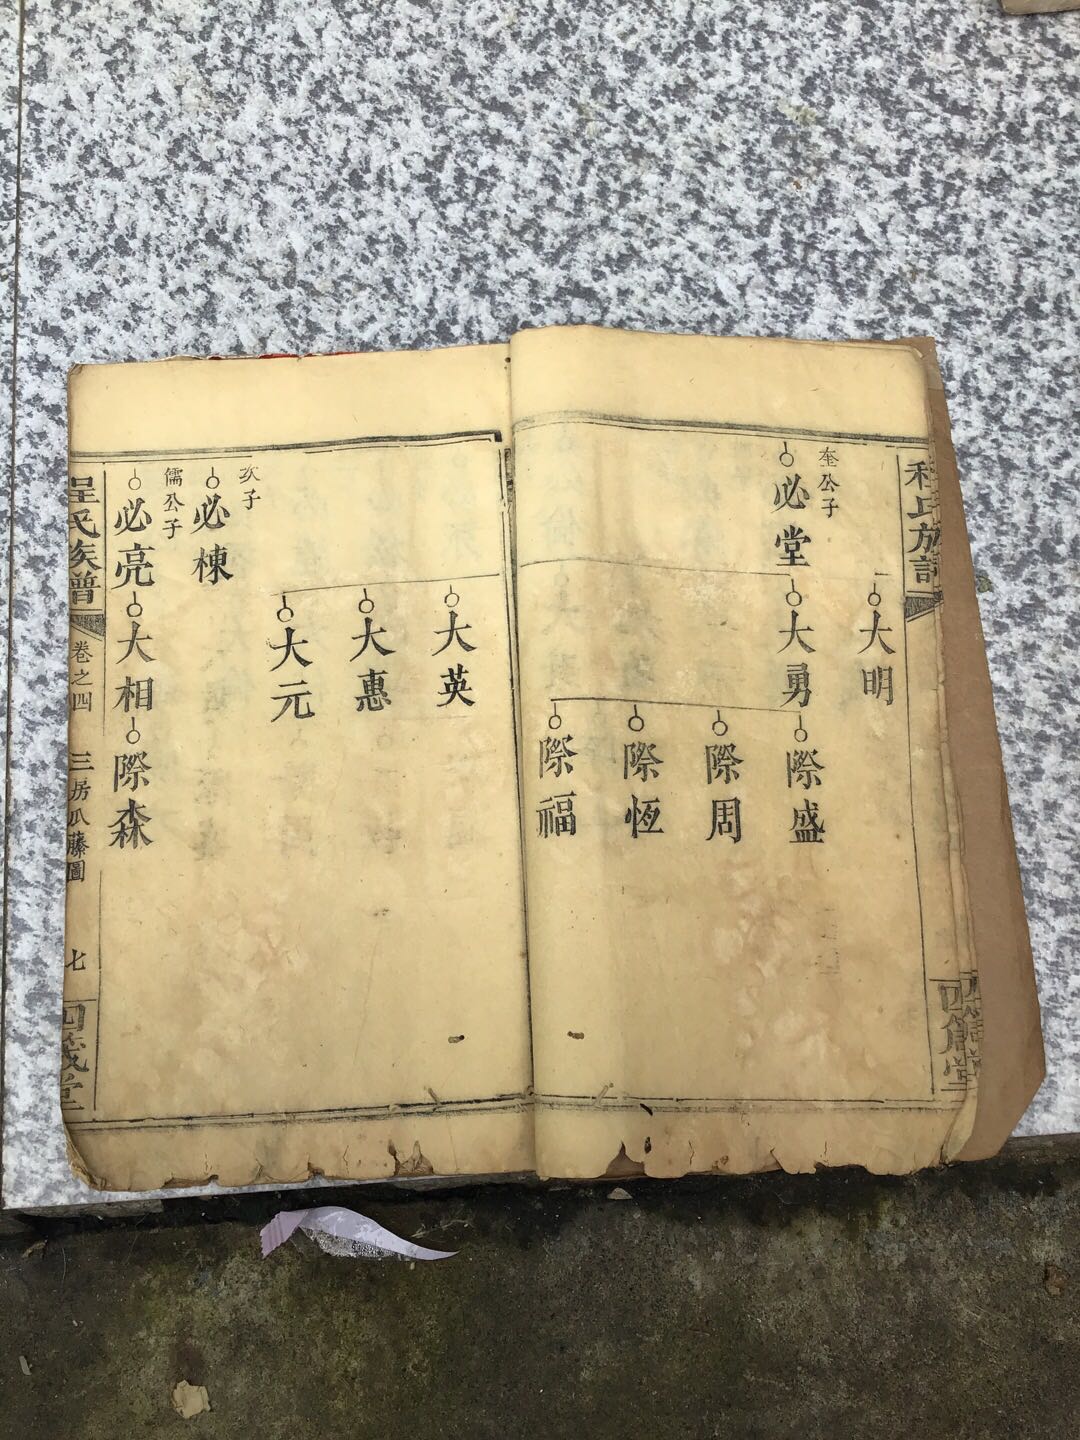 程氏族譜
四箴堂
大明
奎公子
必堂
大勇
際盛
際周
際恆
際福
大英
大惠
大元
次子
必棟
儒公子
必亮
大相
際森
程氏族譜
卷之四
三房瓜藤圖
七
四箴堂